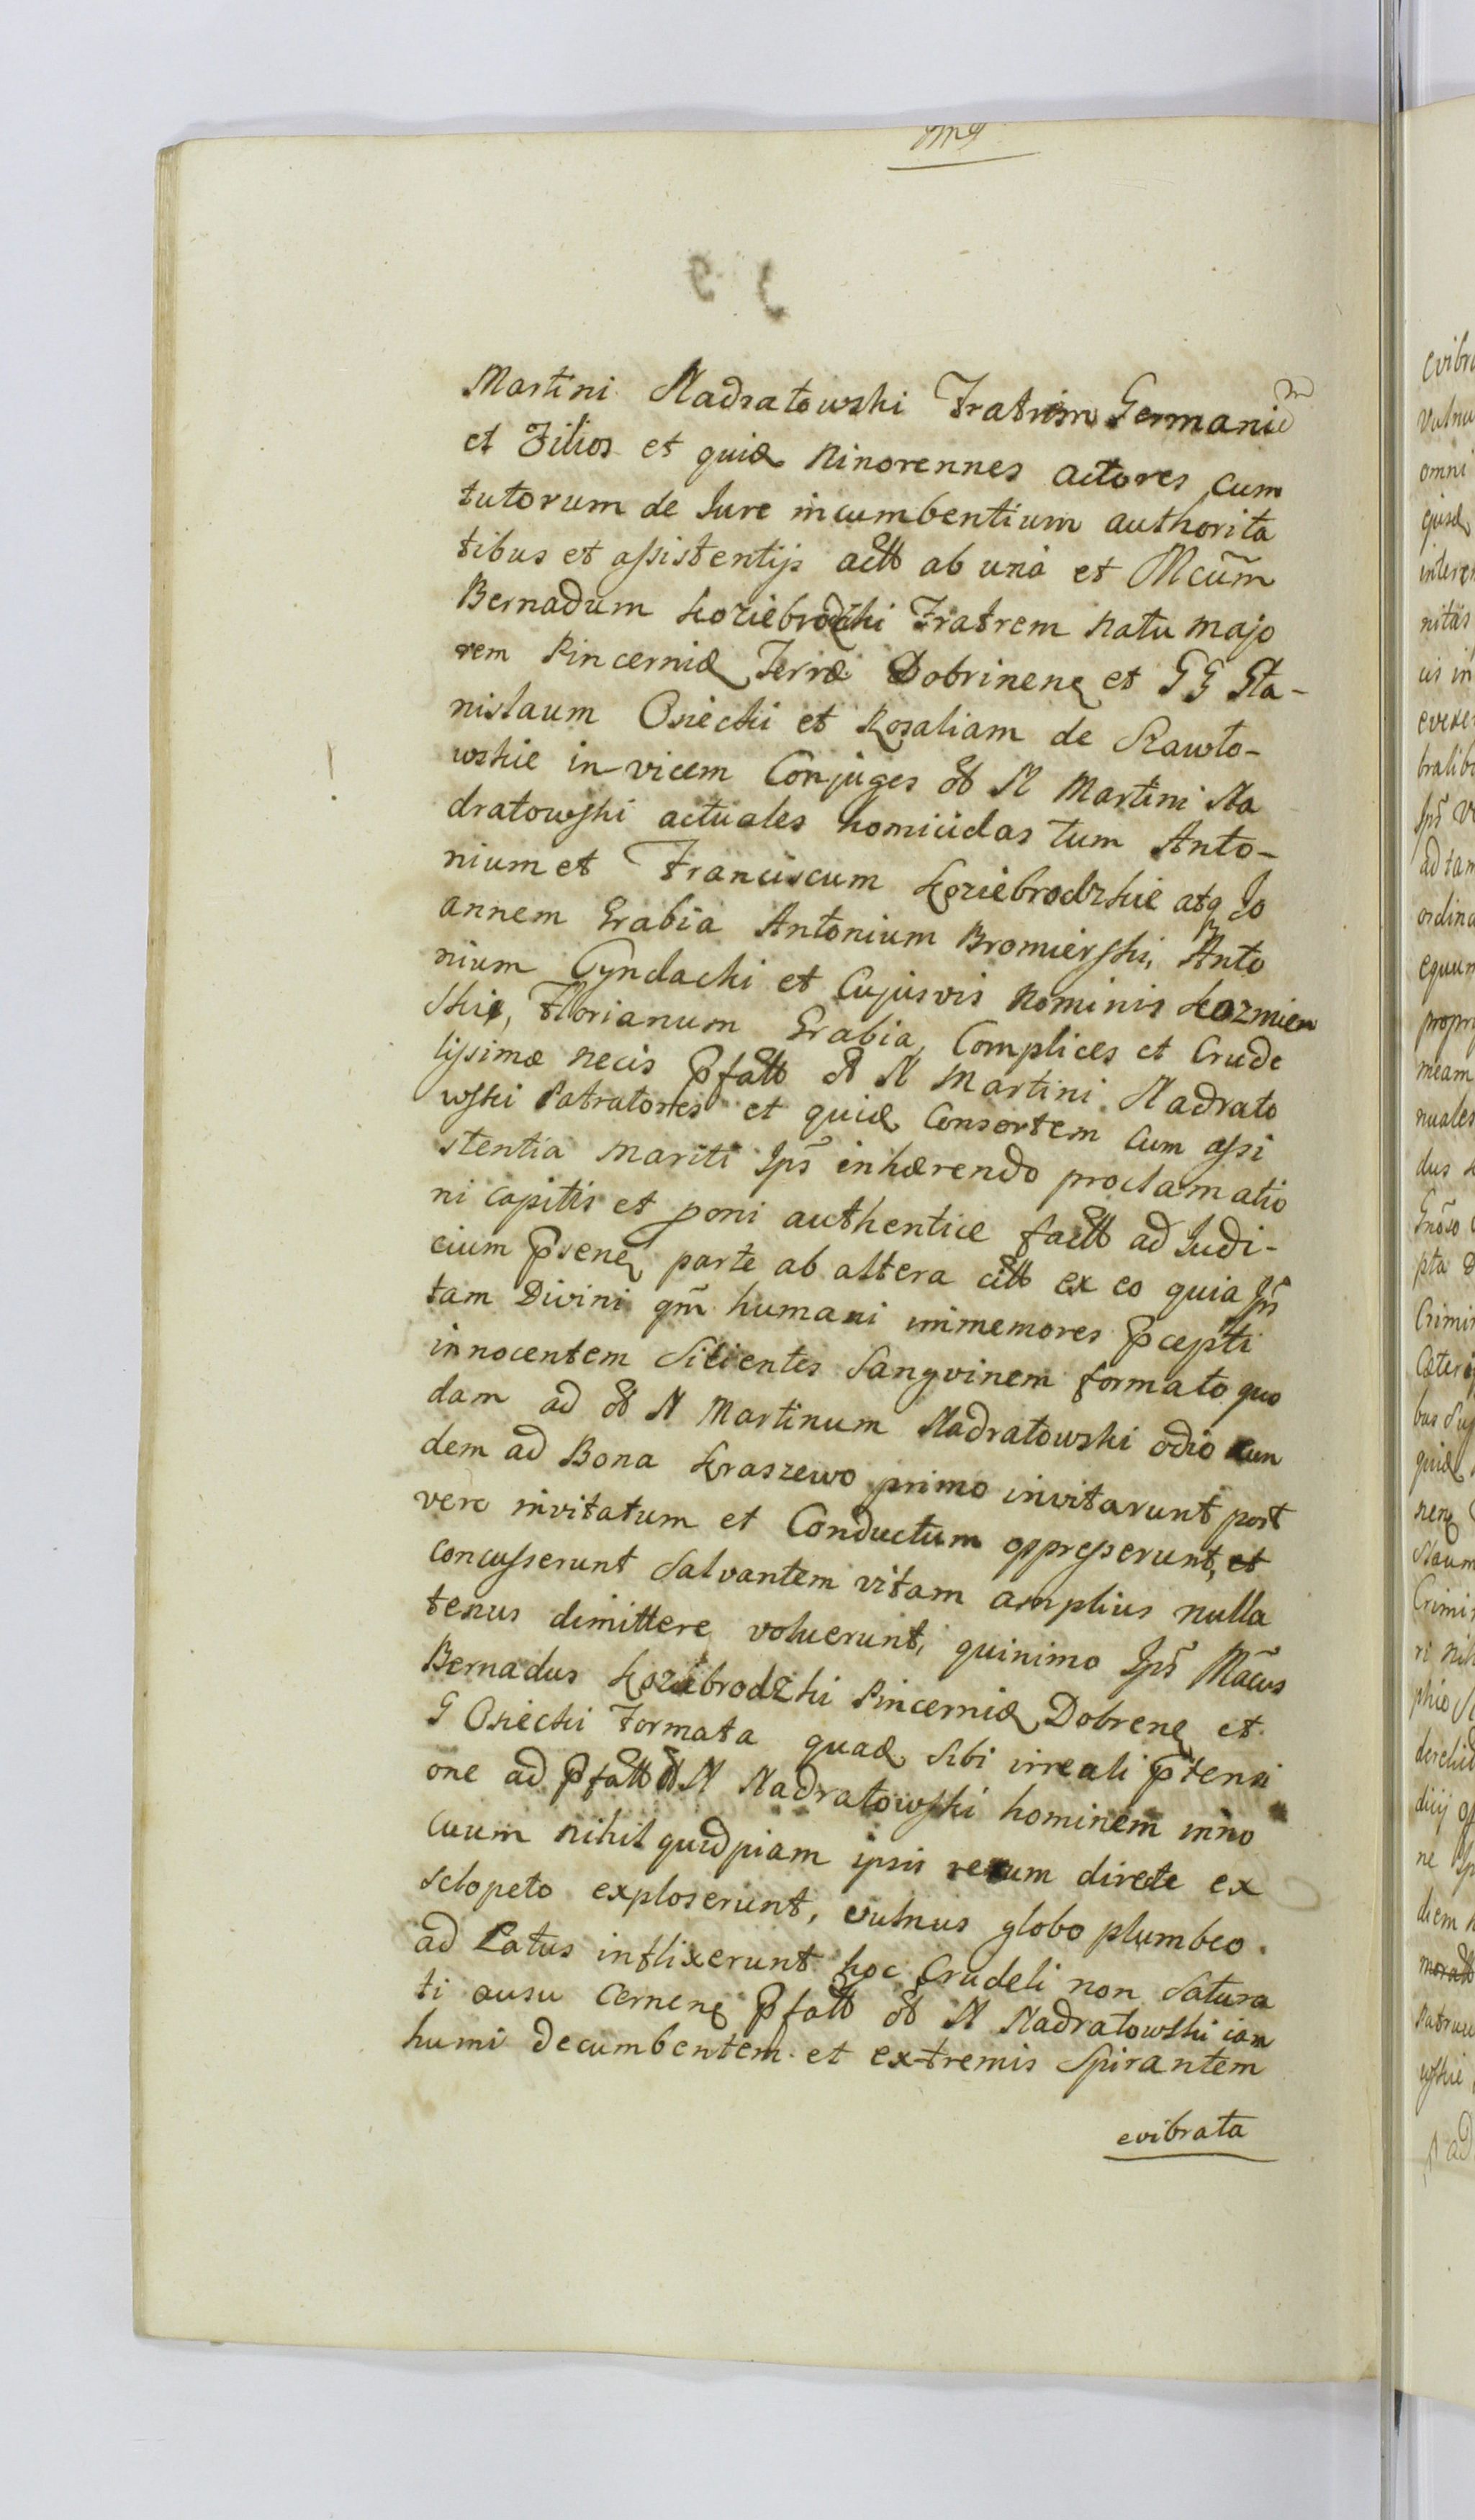 Martini Nadratowski Fratrem Germani
et Filios et quidē Minorennes actores cum
tutorum de Jure incumbentium authorita
tibus et assistentijs actt ab unà et Mcūm
Bernadum Koziebrodzki Fratrem Natu majo
rem Pincernidē Terræ Dobrinenę et GG Sta-
nislaum Osiecki et Rosaliam de Rawto-
wskie in vicem Conjuges ot N Martini Na
dratowski actuales homicidas tum Anto-
nium et Franciscum Koziebrodzkie atq Jo
annem Grabia Antonium Bromierski, Anto
nium Cyndacki et Cujusvis Nominis Kozmien
skie, Florianum Grabia, Complices et Crude
lissimæ necis Pfatt ot N Martini Nadrato
wski Patratores et quidē Consortem cum assi
stentia Mariti Jps̄ inhærendo proclamatio
ni capitis et poni authentice factt ad Judi-
cium Psenę parte ab altera citt ex eo quia Jps̄
tam Divini qm̄ humani immemores Pcepti
innocentem Sitientes Sangvinem formato quo
dam ad ot N Martinum Nadratowski odio eun
dem ad Bona Kraszewo primo invitarunt post
vero invitatum et Conductum oppresserunt, et
concusserunt Salvantem vitam amplius nulla
tenus dimittere voluerunt, quinimo Jps̄ Mācus
Bernadus Koziebrodzki Pincernidē Dobrenę et
G Osiecki Formata quadē Sibi irreali Ptensi
one ad Pfatt ot N Nadratowski hominem inno
cuum nihil quidpiam ipsis rerum directe ex
sclopeto exploserunt, vulnus globo plumbeo
ad Latus inflixerunt hoc Crudeli non Satura
ti ausu Cernenę Pfatt ot N Nadratowski iam
humi decumbentem et extremis Spirantem
evibrata